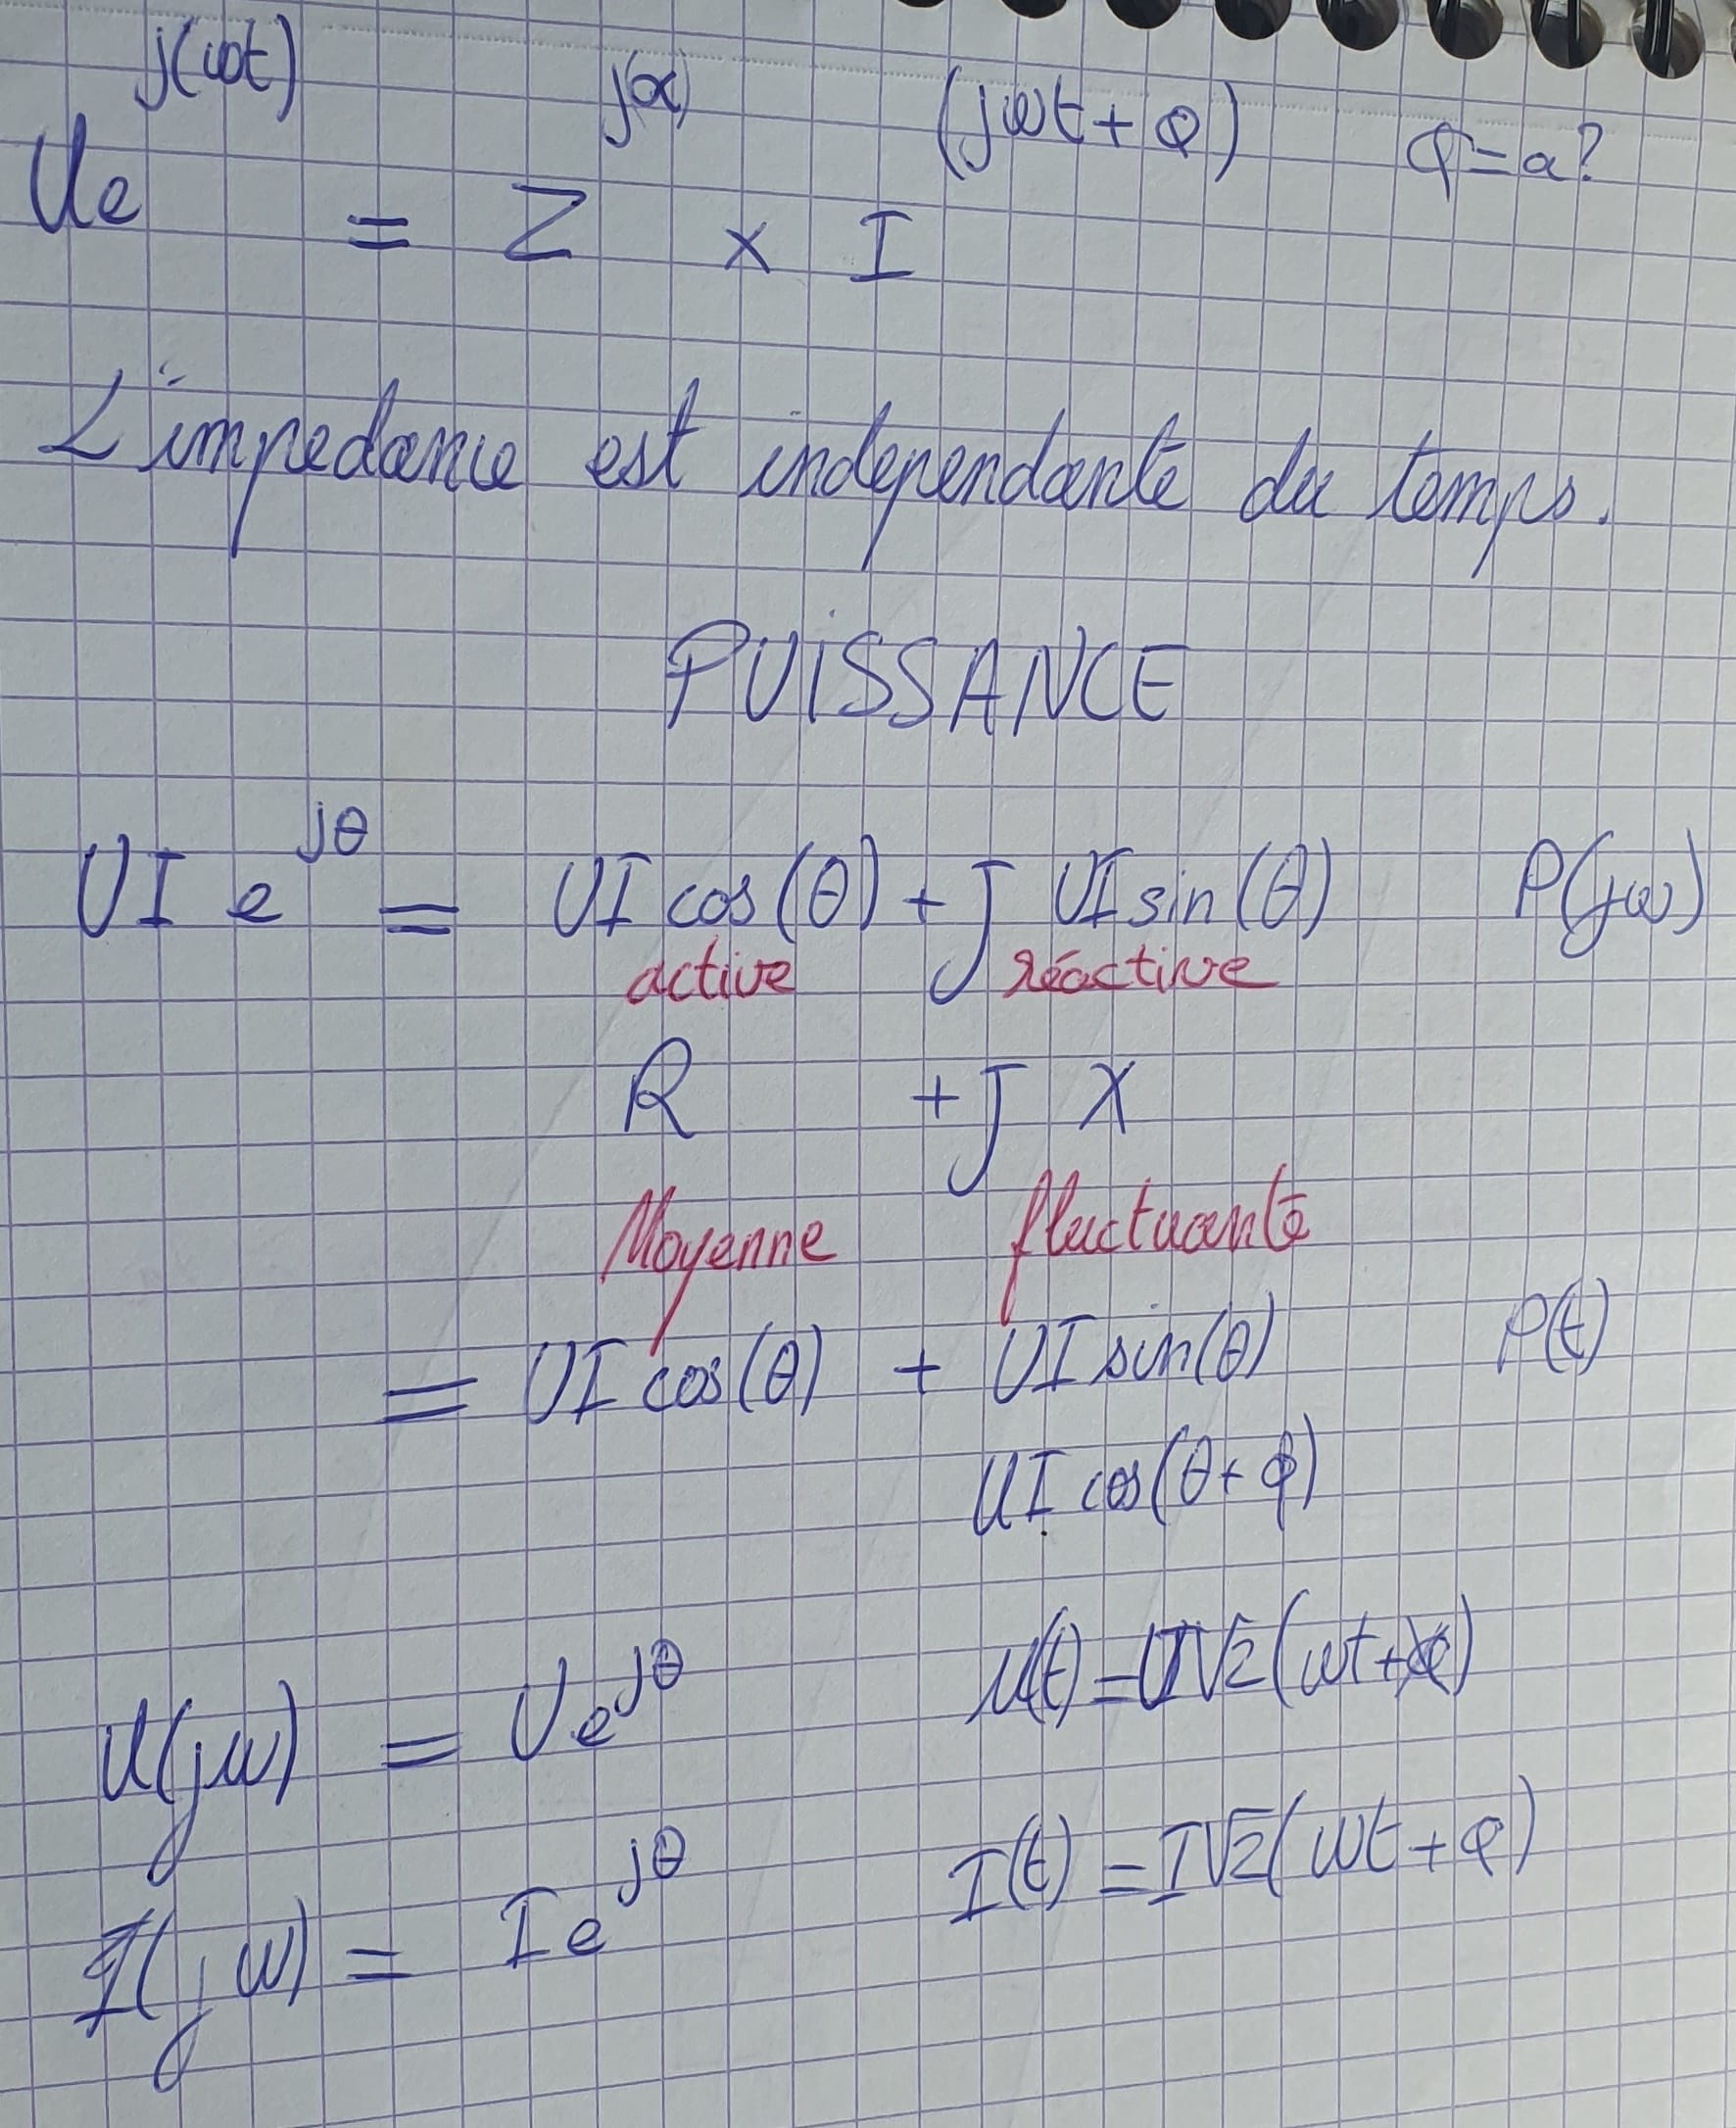 Ue^j(ωt) = Z^j(α) × I^(jωt + φ) φ = α?
L'impedance est independante du temps.
PUiSSANCE
UI e^jθ = UI cos(θ) + J UI sin(θ) P(jω)
active réactive
R + J X
Moyenne fluctuante
= UI cos(θ) + UI sin(θ) P(t)
UI cos(θ + φ)
U(jω) = Ue^jθ u(t) = U√2(ωt + φ)
I(jω) = Ie^jθ I(t) = I√2(ωt + φ)